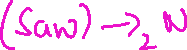 (Saw) →₂ N